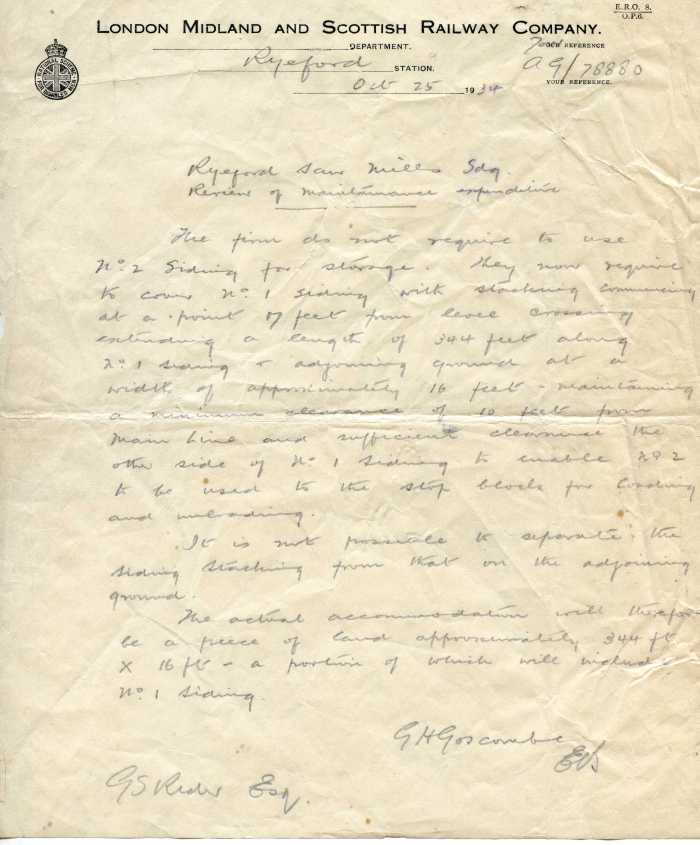 E.R.O. 8.
O.P.6.
LONDON MIDLAND AND SCOTTISH RAILWAY COMPANY.
DEPARTMENT.
REFERENCE
Ryeford STATION.
AG/78880
YOUR REFERENCE.
Oct 25 1934
NATIONAL SCHEME FOR DISABLED MEN
Ryeford Saw Mills Sdg.
Review of maintenance expenditure
The firm do not require to use
No. 2 Siding for storage. They now require
to cover No. 1 siding with stacking commencing
at a point 17 feet from level crossing
extending a length of 344 feet along
No. 1 siding & adjoining ground at a
width of approximately 16 feet - maintaining
a minimum clearance of 10 feet from
Main Line and sufficient clearance the
other side of No. 1 Siding to enable No 2
to be used to the stop blocks for loading
and unloading.
It is not possible to separate the
siding stacking from that on the adjoining
ground.
The actual accommodation will therefore
be a piece of land approximately 344 ft
X 16 ft - a portion of which will include
No. 1 Siding.
G H Goscombe
G S Rider Esq.